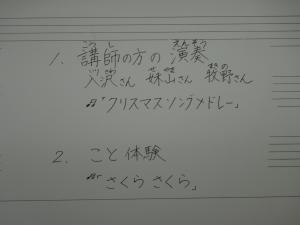 こうし えんそう
1. 講師の方の演奏
まきの
入沢さん 妹山さん 牧野さん
♫「クリスマスソングメドレー」
2. こと体験
♫「さくら さくら」